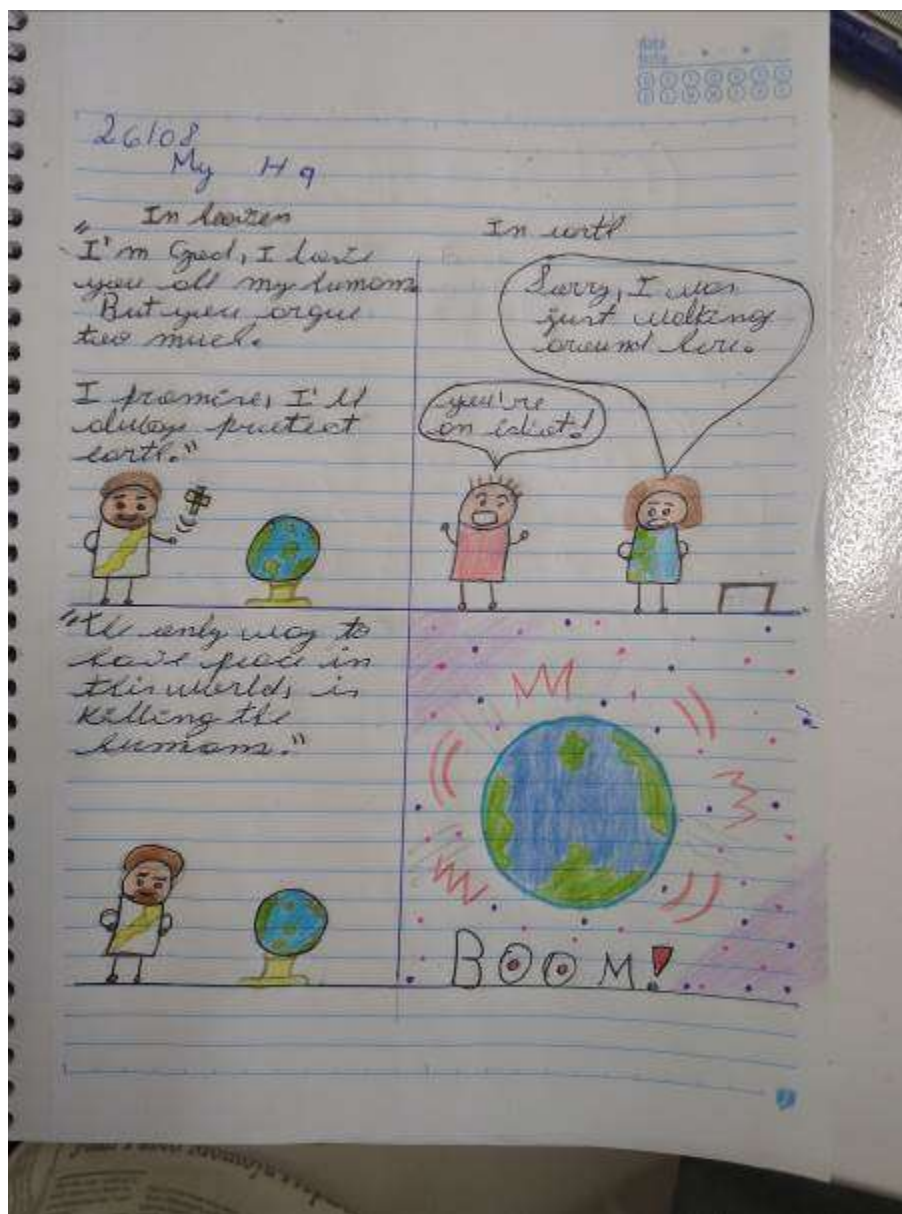 data
26/08
My Hq
In heaven
"I'm God, I love
you all my humans.
But you argue
too much.
I promise, I'll
always protect
earth."
In earth
you're
an idiot!
Sorry, I was
just walking
around here.
"the only way to
have peace in
this world, is
killing the
humans."
BOOM!